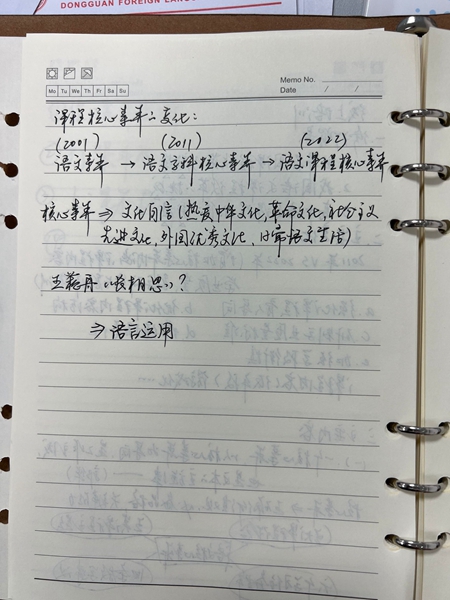 DONGGUAN FOREIGN LAN
Memo No.
Mo Tu We Th Fr Sa Su
Date / /
课程核心素养之变化:
(2001) (2011) (2022)
语文素养 → 语文学科核心素养 → 语文课程核心素养
核心素养 ⇒ 文化自信(热爱中华文化,革命文化,社会主义
先进文化,外国优秀文化,日常语文生活)
王菇冉《长相思》?
⇒ 语言运用